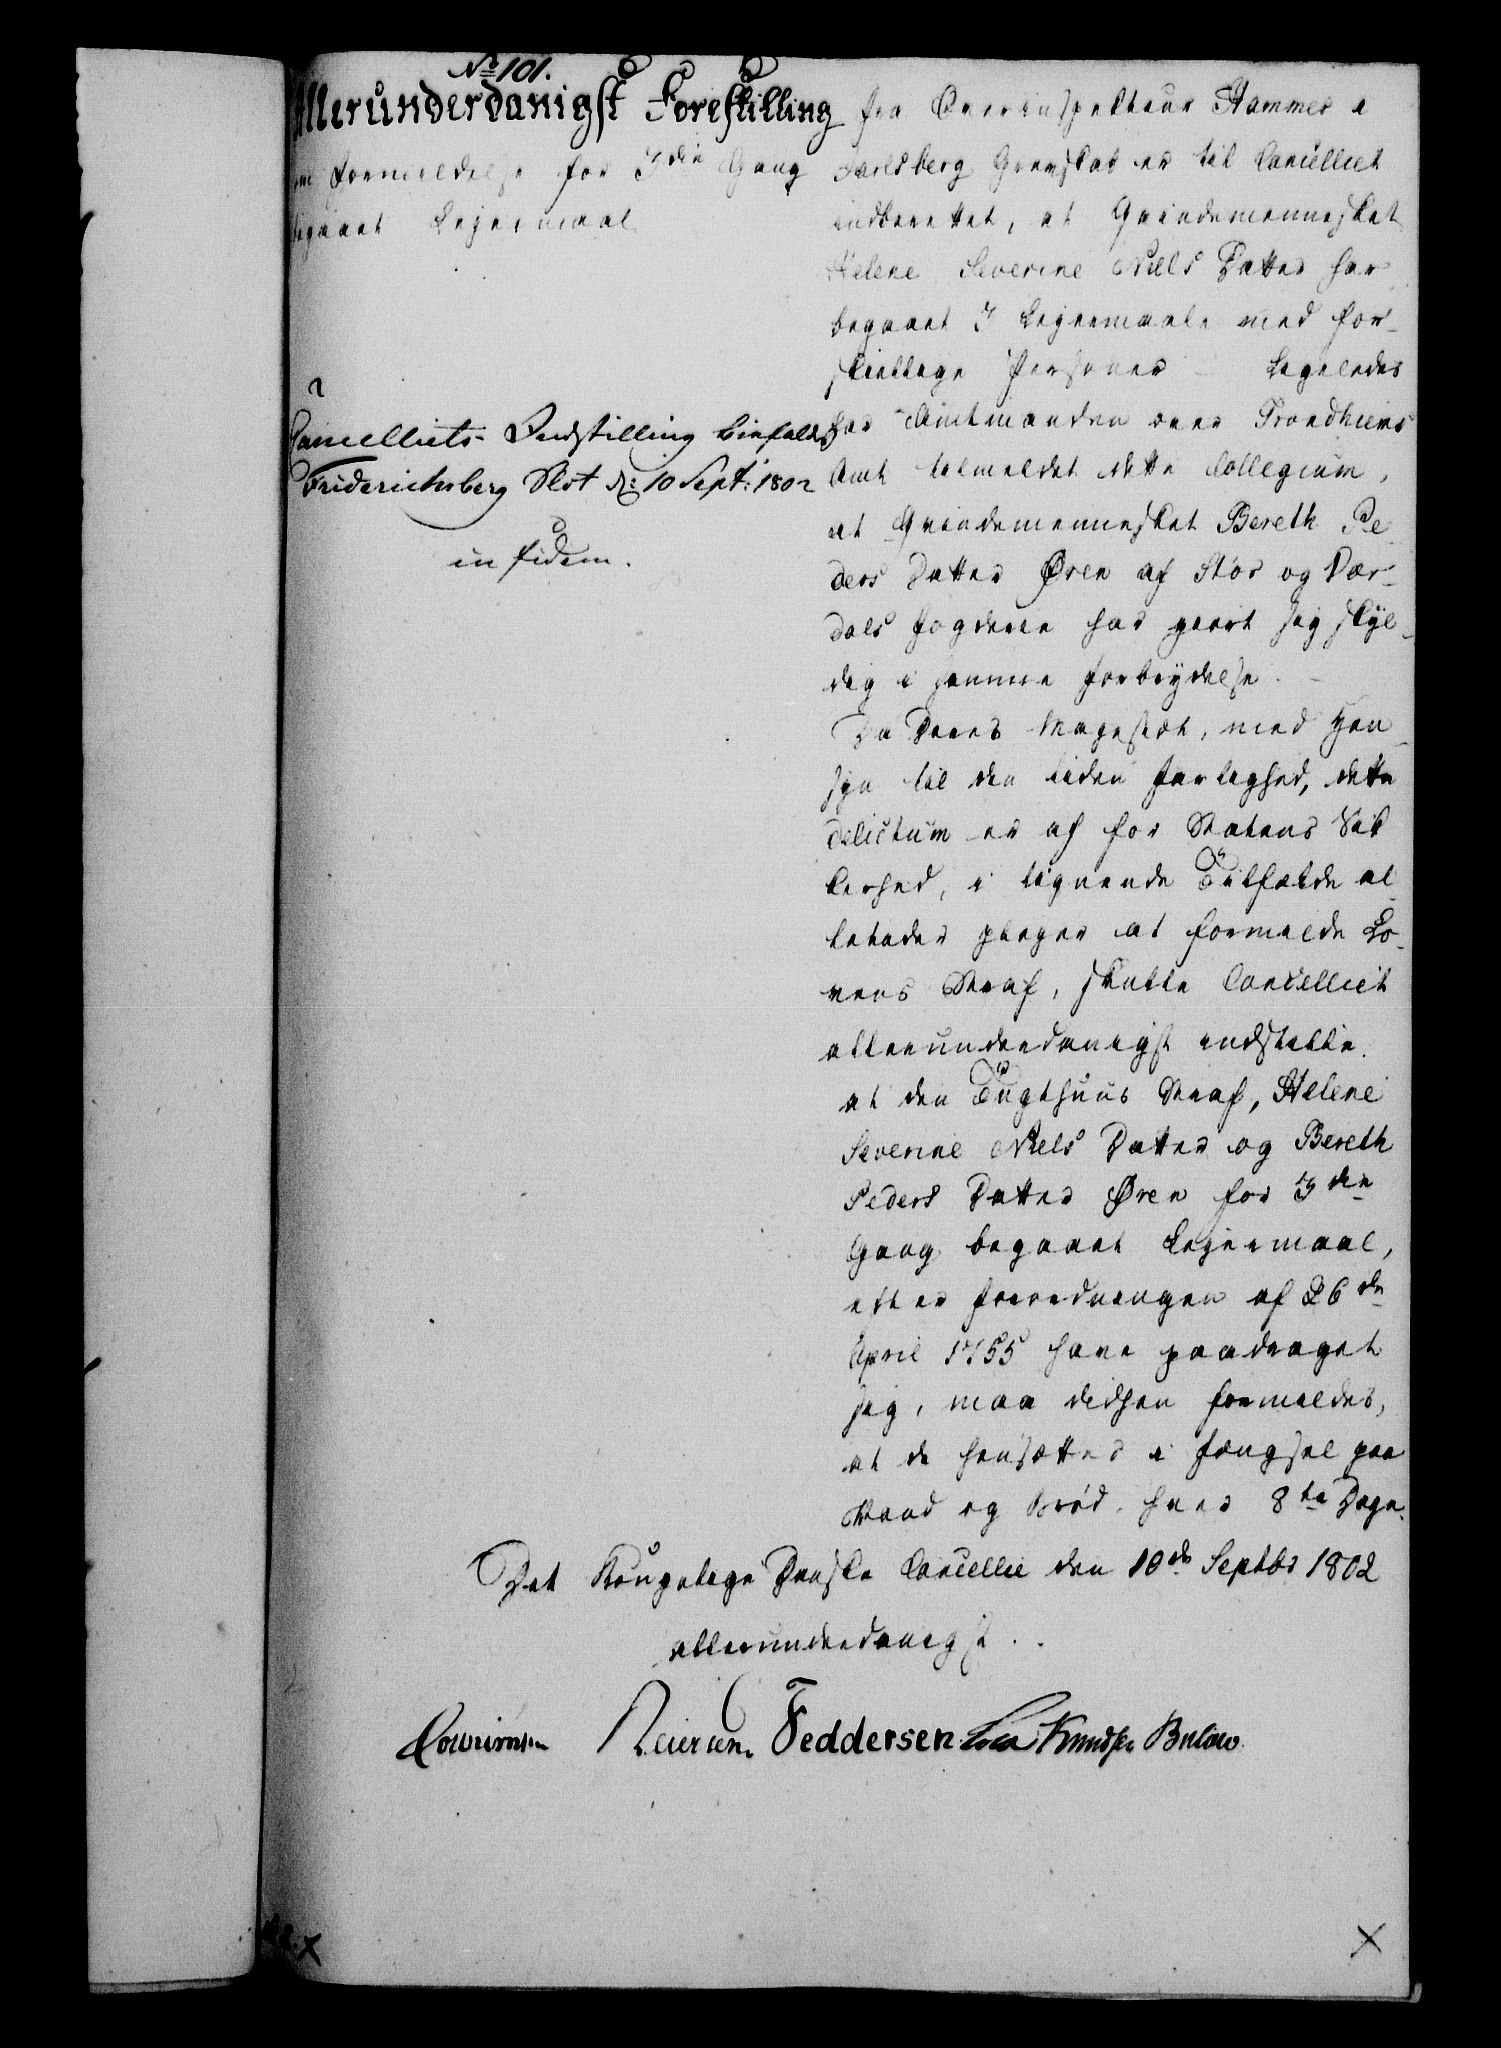 No 101.
Allerunderdanigst Forestilling
om Formildelse for 3die Gang
begaaet Lejermaal
Cancelliets Indstilling bifaldes
Friderichsberg Slot d: 10 Sept: 1802
in fidem.
Fra Overinspekteur Hammer i
Jarlsberg Grevskab er til Cancelliet
indberettet, at Qvindemennesket
Helene Severine Niels Datter har
begaaet 3 Lejermaale med for-
skiellige Personer – Ligeledes
har Amtmanden over Trondhiems
Amt tilmeldet dette Collegium,
at Qvindemennesket Bereth Pe-
ders Datter Øren af Stør og Vær-
dals Fogderie har giort sig skyl-
dig i samme Forbrydelse. –
Da Deres Majestæt, med Hen-
syn til den liden Farlighed, dette
delictum er af for Statens Sik-
kerhed, i lignende Tilfælde al-
lerede pleger at formilde Lo-
vens Straf, skulle Cancelliet
allerunderdanigst indstille.
at den Tugthuus Straf, Helene
Severine Niels Datter og Bereth
Peders Datter Øren for 3die
Gang begaaet Lejermaal,
efter Forordningen af 26de
April 1755 have paadraget
sig, maa derhen formildes,
at de hensættes i Fængsel paa
Vand og Brød hver 8te Dage.
Det Kongelige Danske Cancellie den 10de Septbr 1802
allerunderdanigst . .
Feddersen Knudsen Bulow.